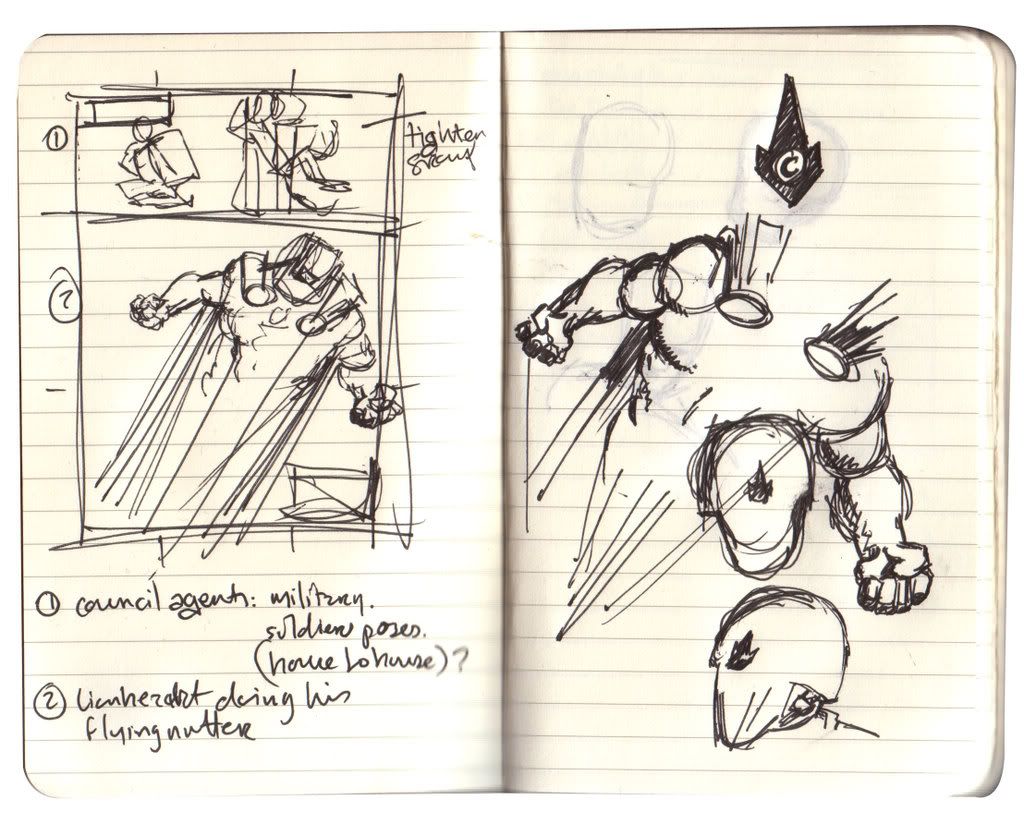 ①
tighter
②
① council agents: military.
soldiers poses.
(house to house)?
② Lionheart doing his
flying nutter
C